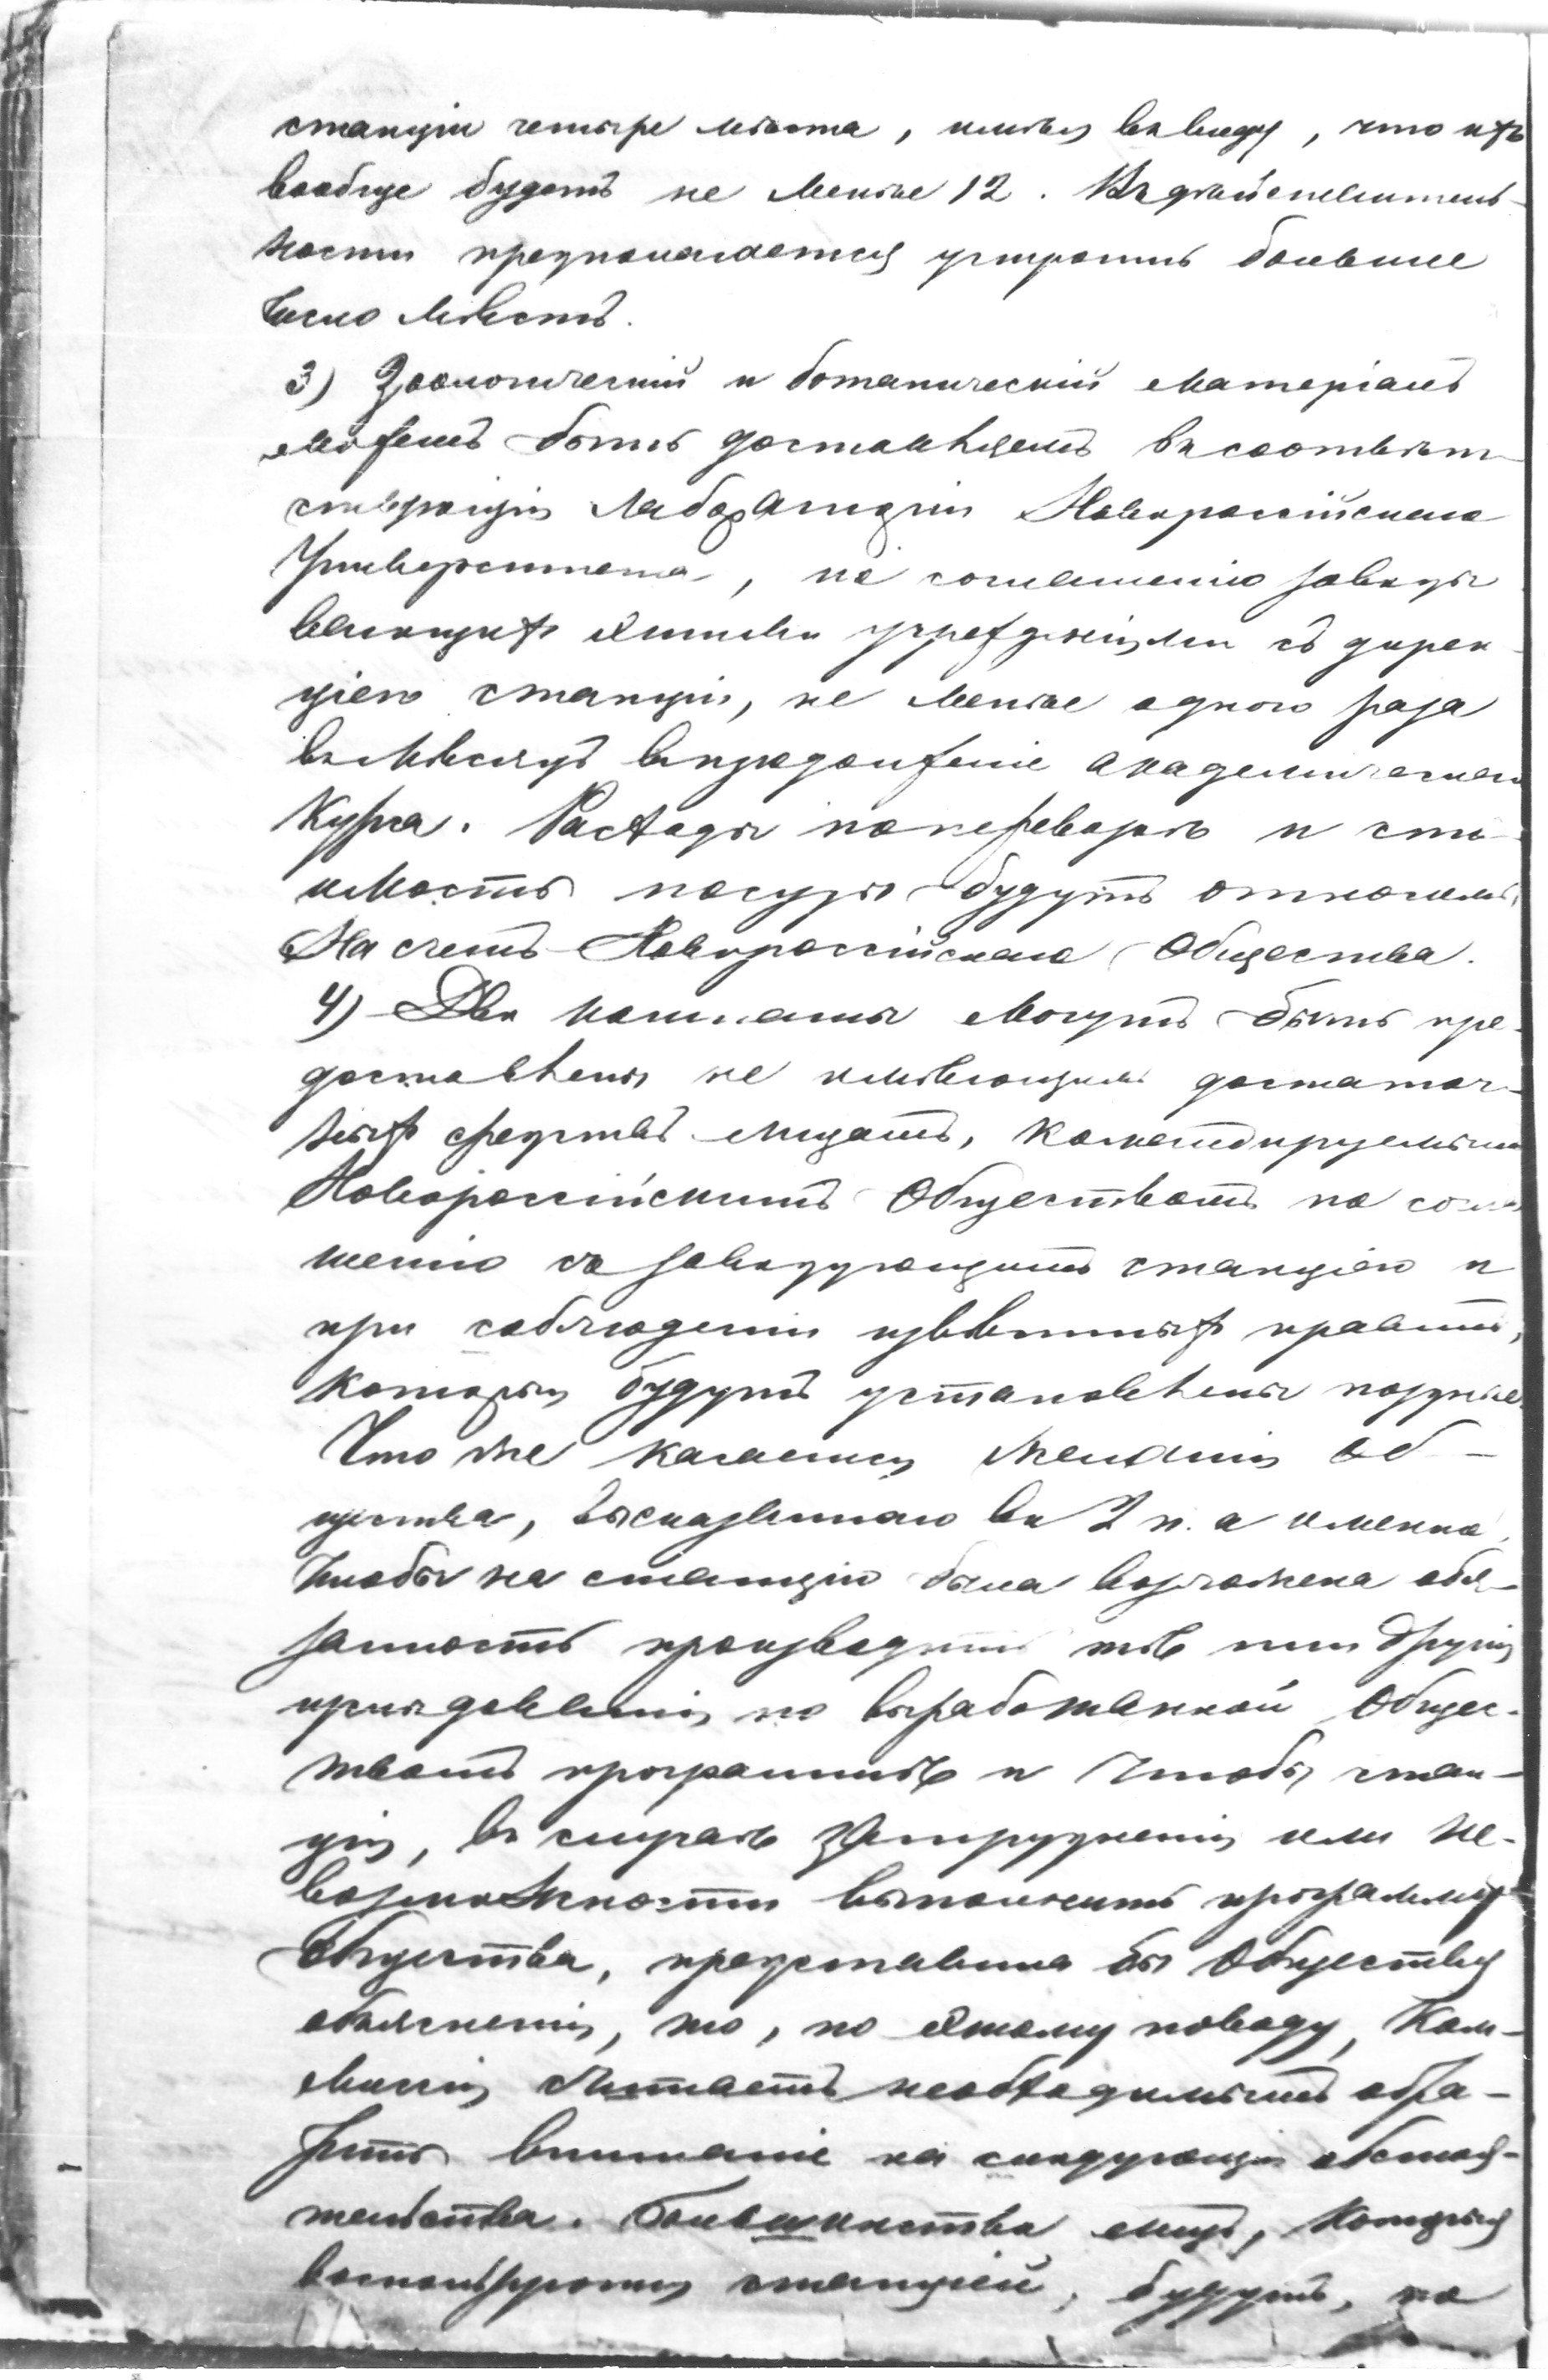 станціи четыре мѣста, имѣя въ виду, что ихъ
вообще будетъ не менѣе 12. Въ дѣйствитель-
ности предполагается устроить большее
число мѣстъ.
3) Зоологическій и ботаническій матеріалъ
можетъ быть доставляемъ въ соотвѣт-
ствующія лабораторіи Новороссійскаго
Университета, по соглашенію завѣды
вающихъ этими учрежденіями съ дирек-
ціею станціи, не менѣе одного раза
въ мѣсяцъ въ продолженіе академическаго
курса. Расходы по перевозкѣ и сто-
имость посуды будутъ относимы
на счетъ Новороссійскаго Общества.
4) Двѣ комнаты могутъ быть пре-
доставлены не имѣющимъ достаточ-
ныхъ средствъ лицамъ, командируемымъ
Новороссійскимъ Обществомъ по согла
шенію съ завѣдующимъ станціею и
при соблюденіи извѣстныхъ правилъ,
которыя будутъ установлены позднѣе.
Что же касается желанія Об-
щества, высказаннаго въ 2 п. а именно,
чтобы на станцію была возложена обя-
занность производить тѣ или другія
изслѣдованія по выработанной Общес-
твомъ программѣ и чтобы стан-
ція, въ случаѣ затрудненія или не-
возможности выполнить программу
Общества, представила бы Обществу
объясненія, то, по этому поводу, Ком-
миссія считаетъ необходимымъ обра-
тить вниманіе на слѣдующія обстоя-
тельства. Большинство лицъ, которыя
воспользуются станціей, будутъ, по